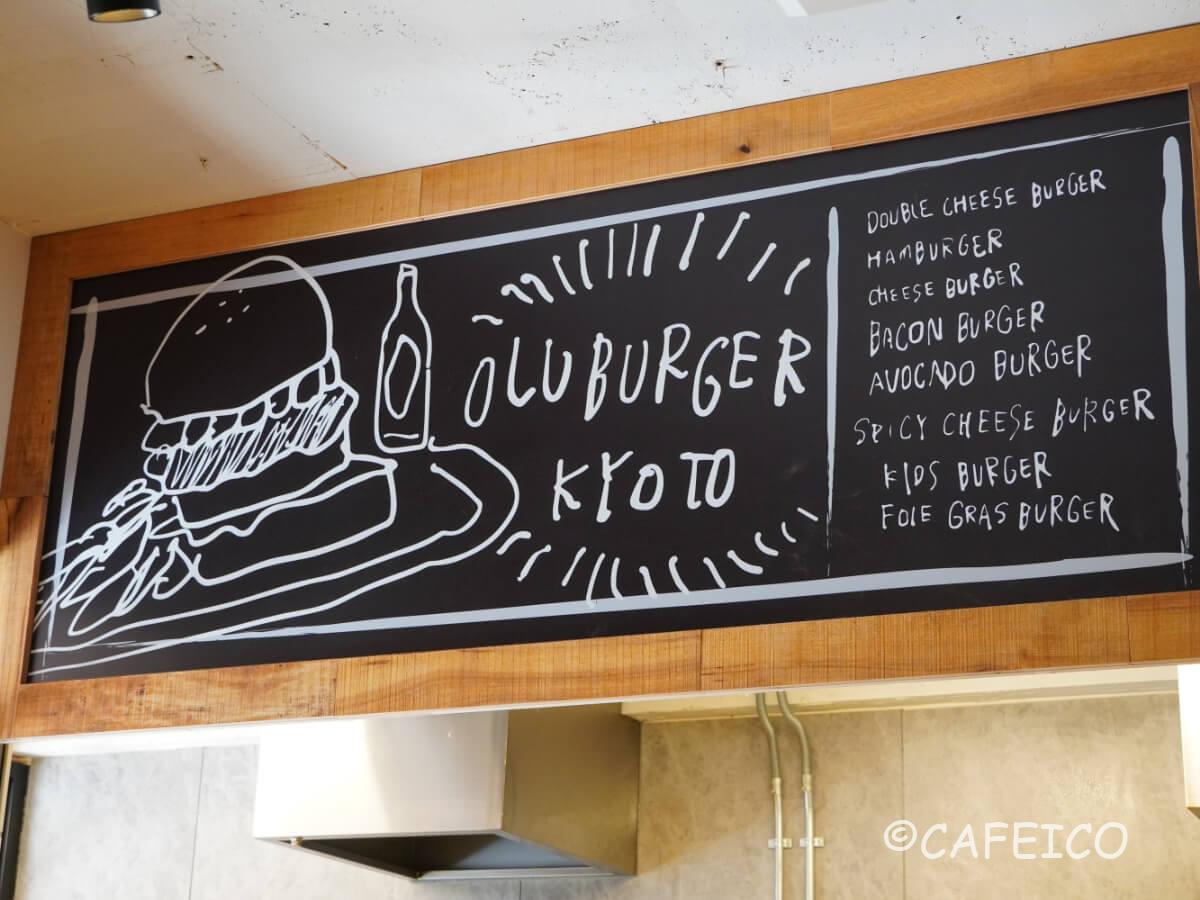 OLU BURGER
KYOTO
DOUBLE CHEESE BURGER
HAMBURGER
CHEESE BURGER
BACON BURGER
AVOCADO BURGER
SPICY CHEESE BURGER
KIDS BURGER
FOIE GRAS BURGER
©CAFEICO